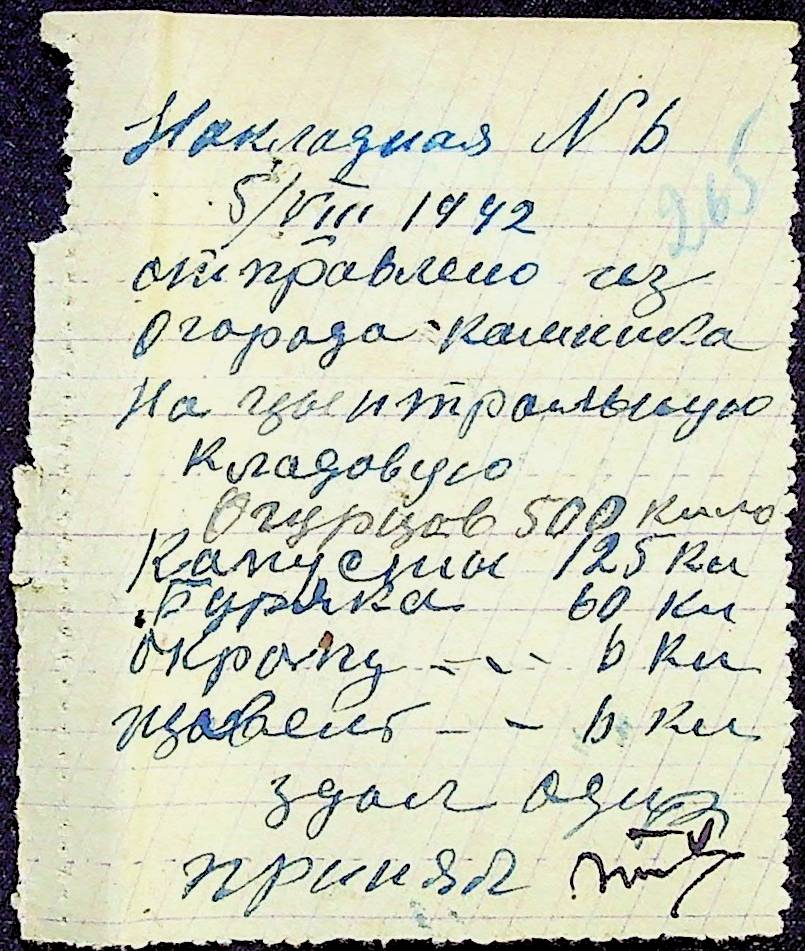 Накладная N 6
265
5/VIII 1942
отправлено из
огорода
на центральную
кладовую
Огурцов 500 кило
Капусты 125 кл
Буряка 60 кл
окропу - - - 6 кл
щавель - - 6 кл
здал
принял